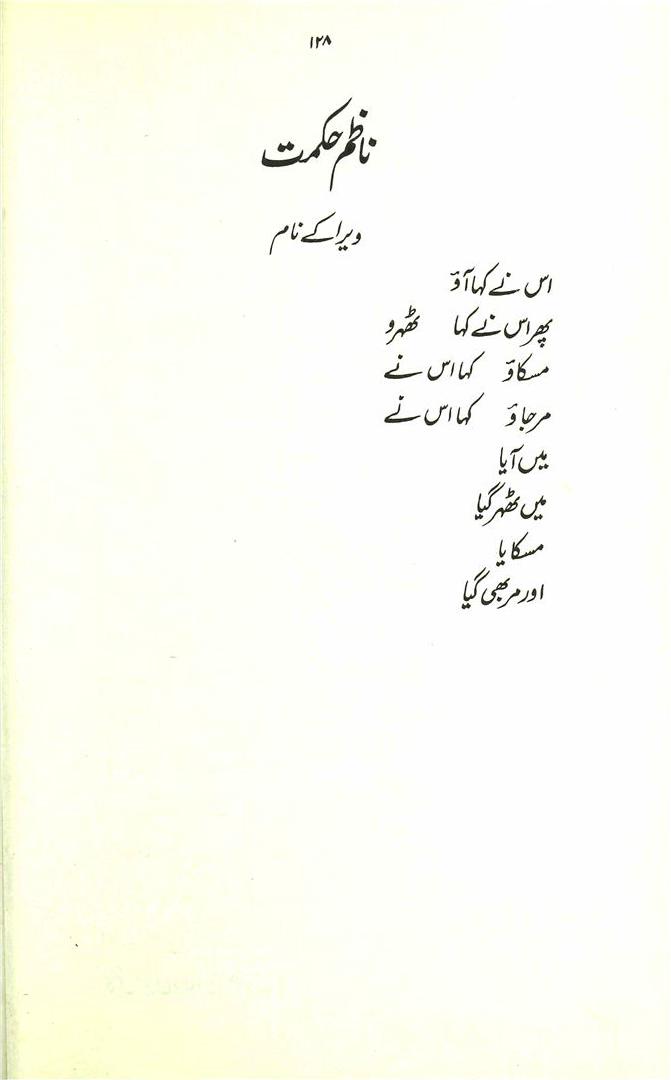 ۱۲۸
ناظم حکمت
ویرا کے نام
اس نے کہا آؤ
پھر اس نے کہا ٹھہرو
مسکاؤ کہا اس نے
مرجاؤ کہا اس نے
میں آیا
میں ٹھہر گیا
مسکایا
اور مر بھی گیا